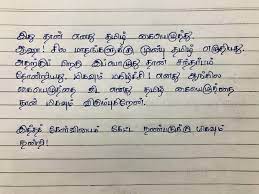 இது தான் எனது தமிழ் கையெழுத்து.
ஆஹா! சில மாதங்களுக்கு முன்பு தமிழ் எழுதியது.
அதற்குப் பிறகு இப்பொழுது தான் சந்தர்ப்பம்
தோன்றியது. மிகவும் மகிழ்ச்சி! எனது ஆங்கில
கையெழுத்தை விட எனது தமிழ் கையெழுத்தை
நான் மிகவும் விரும்புகிறேன்.
இந்தக் கேள்வியைக் கேட்ட நண்பருக்கு மிகவும்
நன்றி!